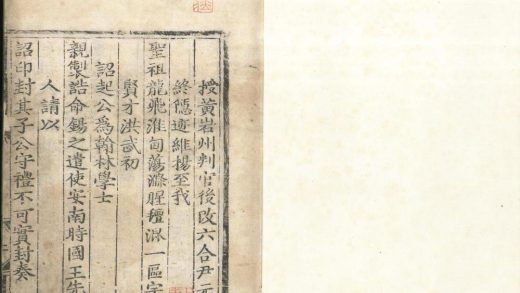 授黃岩州判官後改六合尹元
終隱迹維揚至我
聖祖龍飛淮甸蕩滌腥羶混一區宇
賢才洪武初
詔起公爲翰林學士
親製誥命錫之遣使安南時國王先
人請以
詔印封其子公守禮不可實封奏